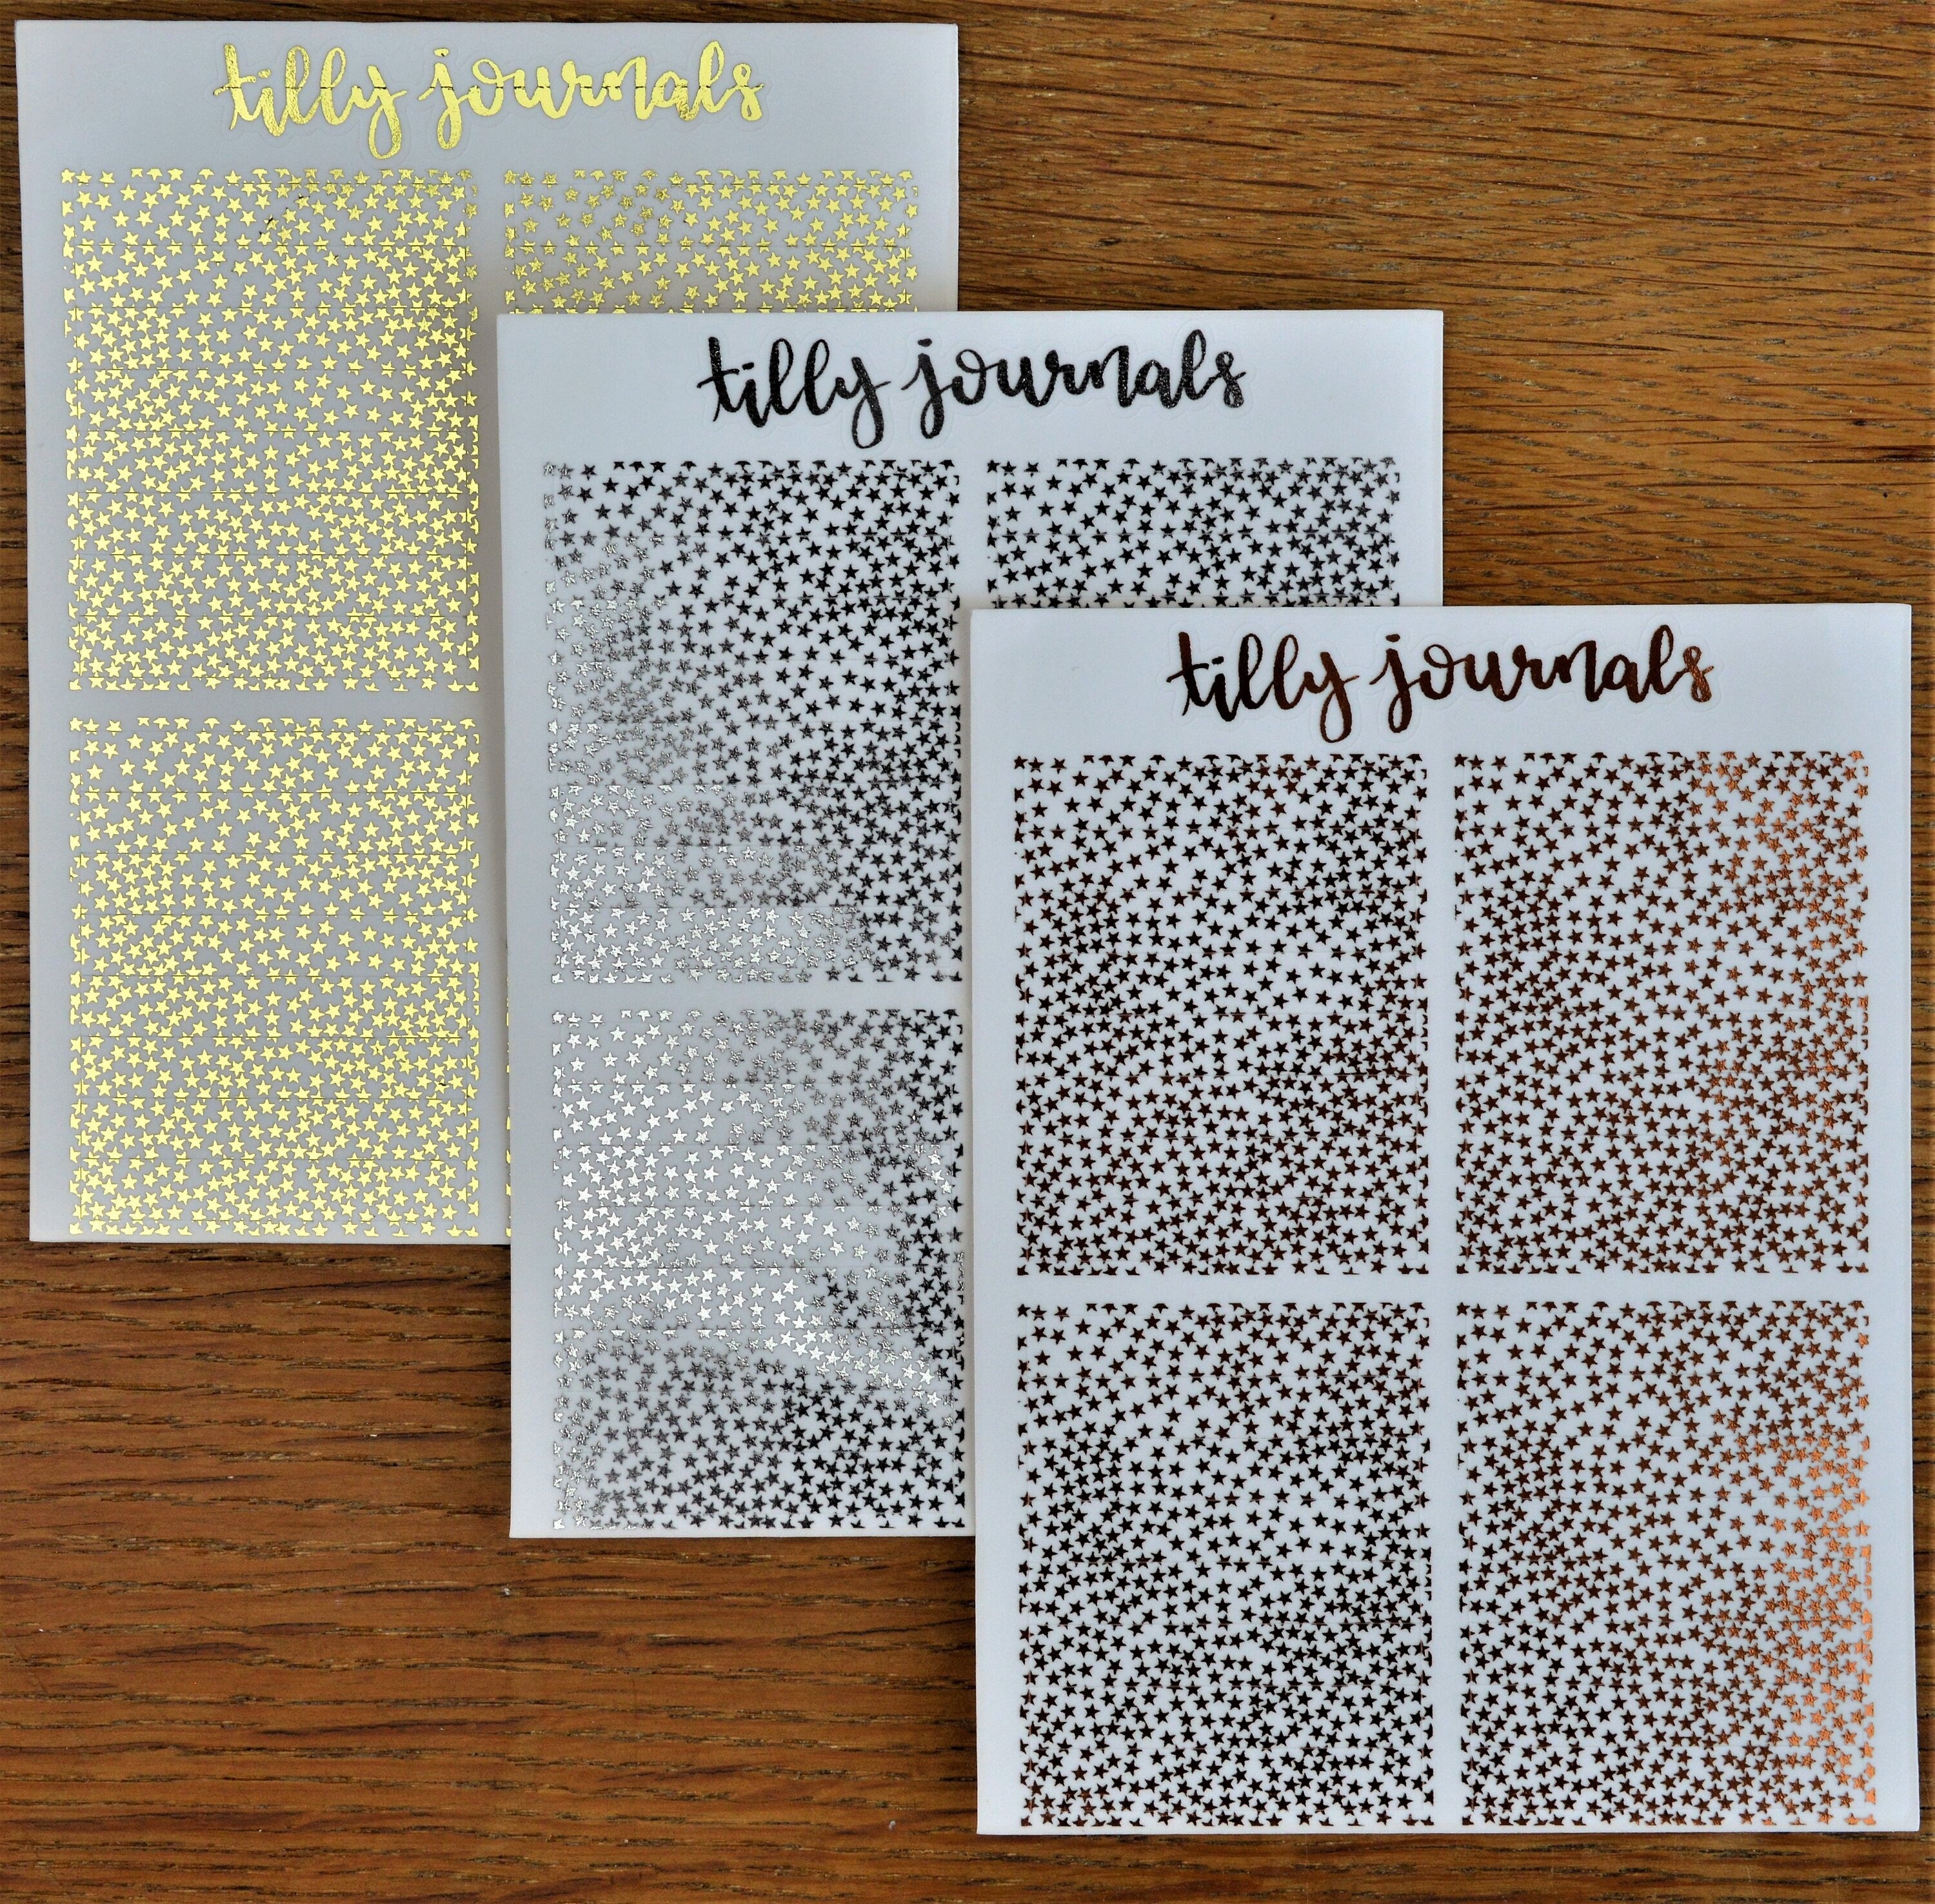 tilly journals
tilly journals
tilly journals